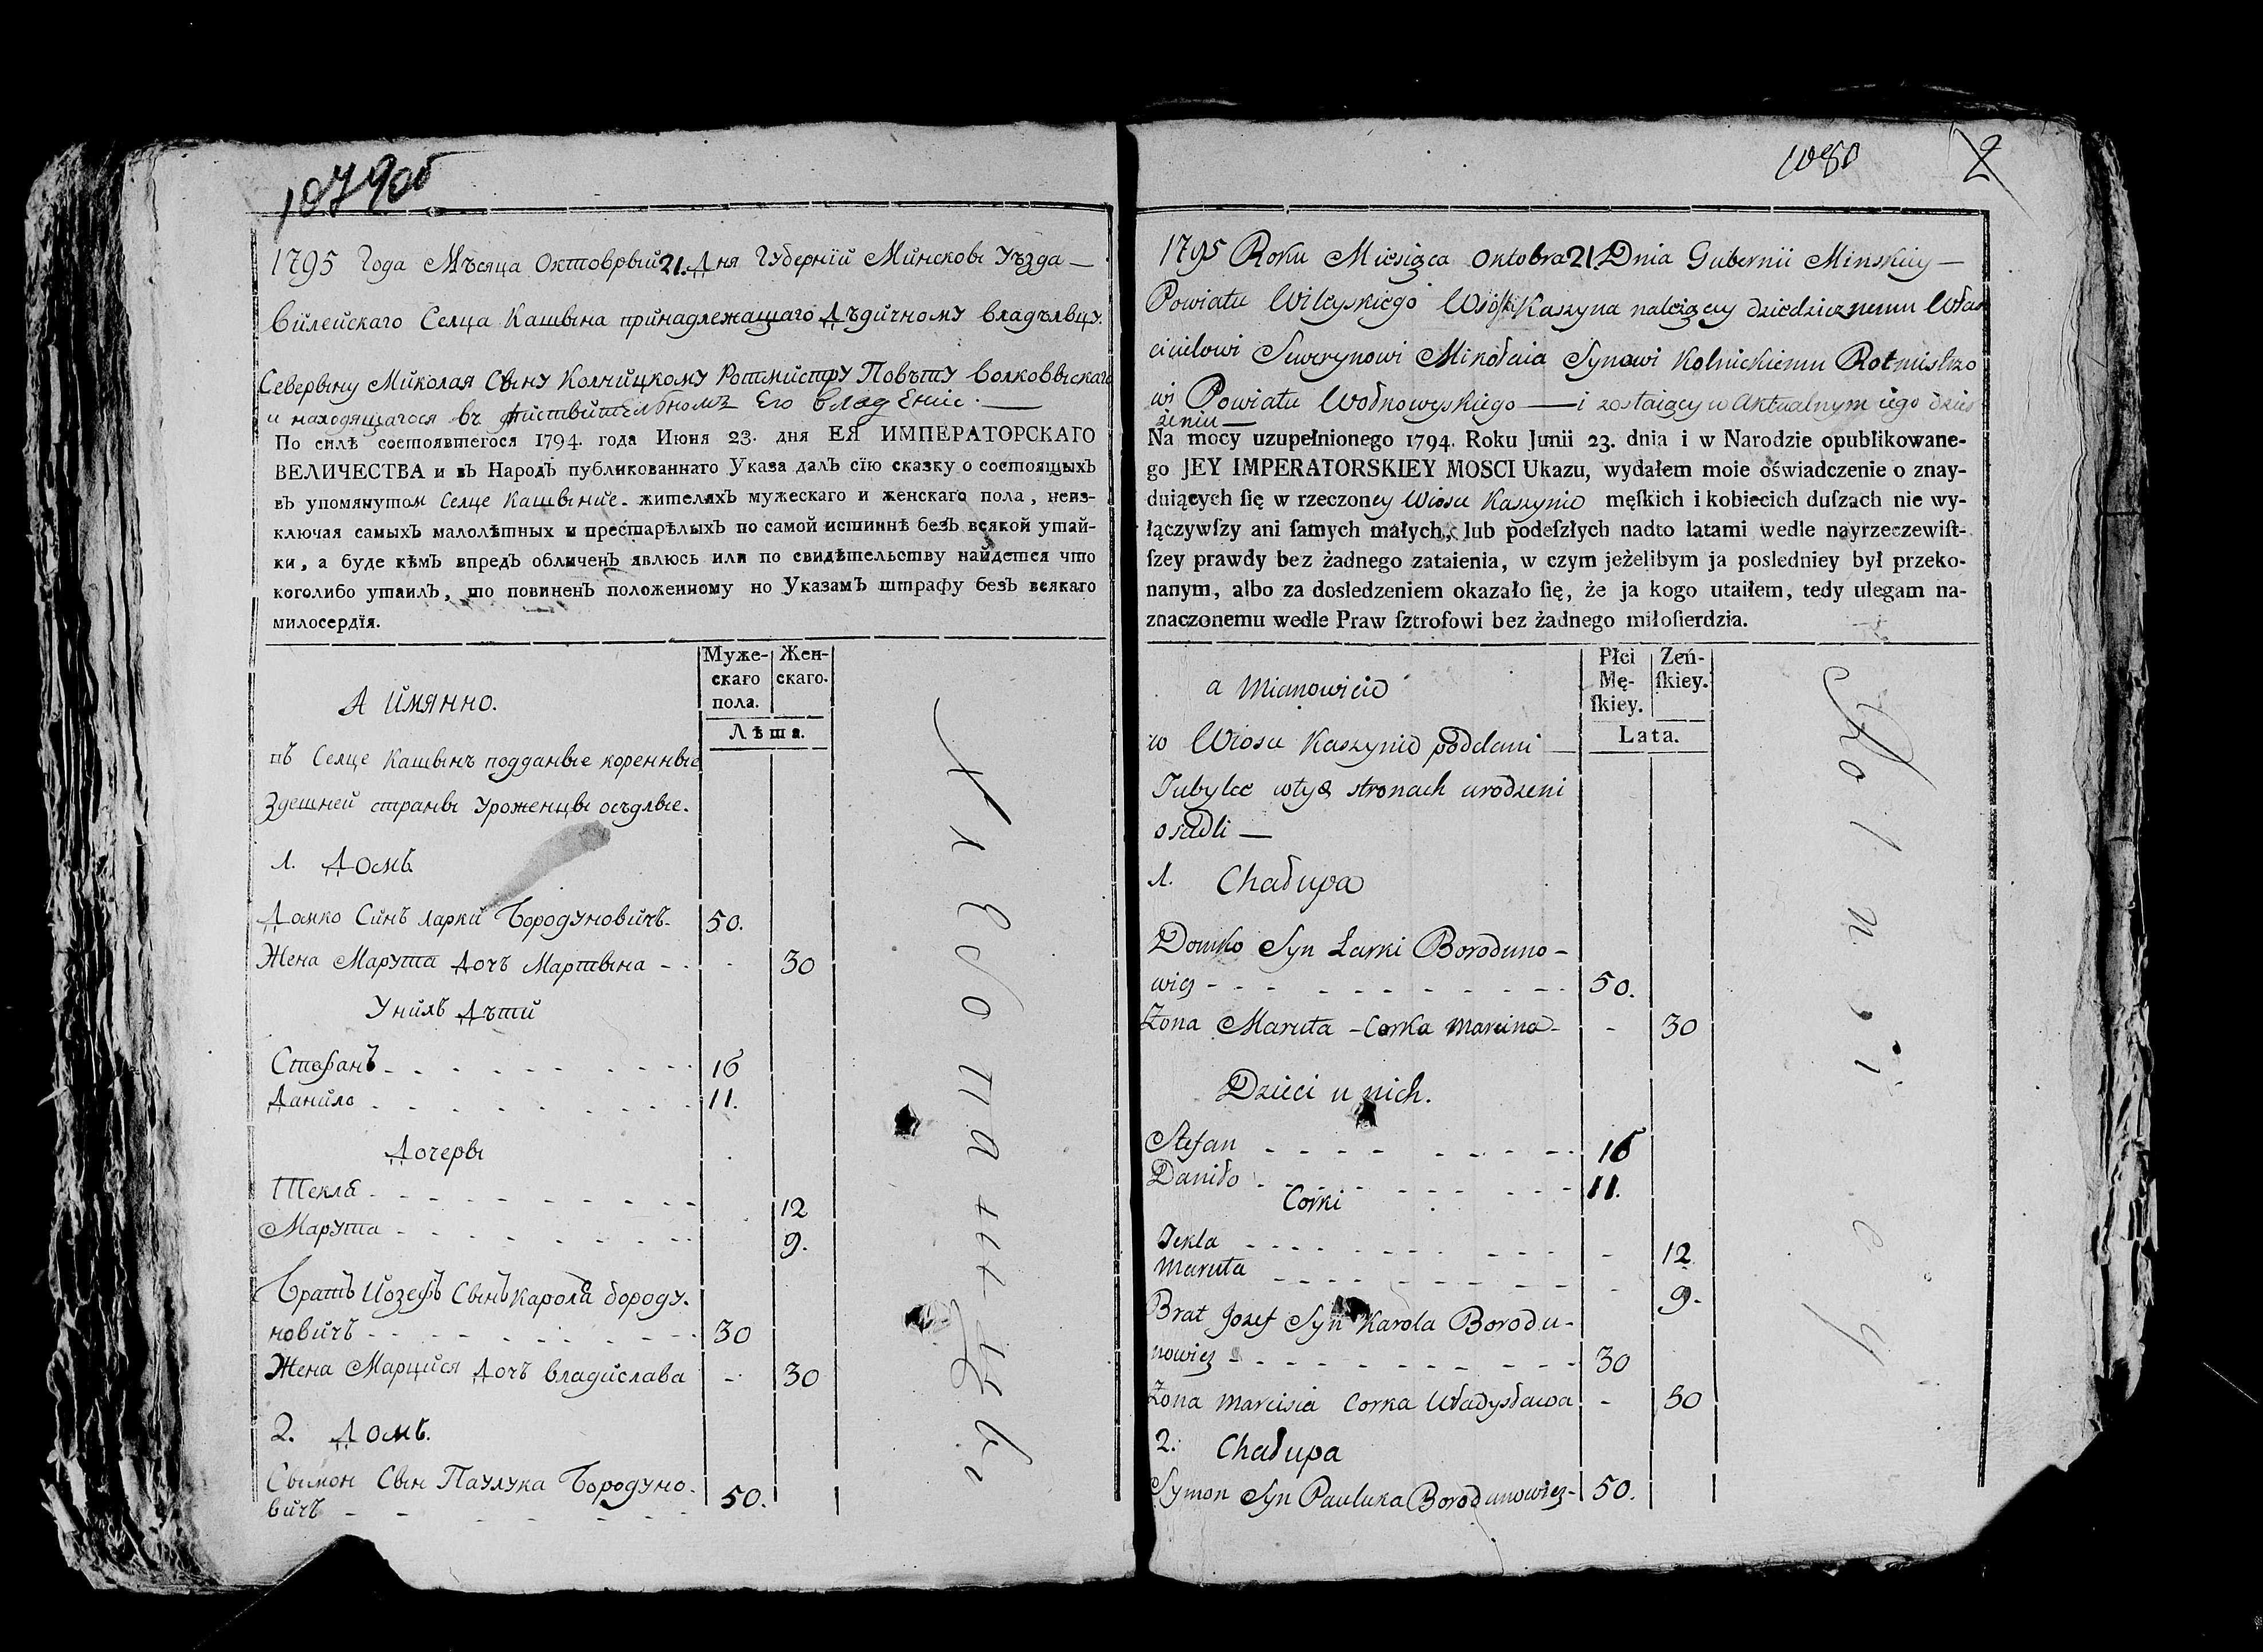 1079об
1795 Года Мѣсяца Октоврый 21. Дня Губерніи Минскові Уѣзда —
Вилейскаго Селца Кашына принадлежащаго Дѣдичному владѣлвцу.
Северыну Миколая Сыну Колницкому Ротмистру Повѣту Волковыскаго
и находящагося въ Его владЕние. —
По силѣ состоявшегося 1794. года Июня 23. дня ЕЯ ИМПЕРАТОРСКАГО
ВЕЛИЧЕСТВА и вЪ НародЪ публикованнаго Указа далЪ сїю сказку о состоящыхЪ
вЪ упомянутом Селце Кашыние. жителяхЪ мужескаго и женскаго пола, неиз-
ключая самыхЪ малолѣтных и престарѣлыхЪ по самой истиннѣ безЪ всякой утай-
ки, а буде кѣмЪ впредЪ обличенЪ явлюсь или по свидѣтельству найдется что
коголибо утаилЪ, то повиненЪ положенному по УказамЪ штрафу безЪ всякаго
милосердїя.
Муже-
скаго
пола.
Жен-
скаго.
Лѣта.
А имянно.
въ Селце Кашынъ подданые коренные
Здешней страны Уроженцы осѣдлые.
1. Домъ
Домко Синъ ларки Бородуновичъ- 50.
Жена Марута Дочъ Мартына - - 30
У нихъ Дѣти
Стефанъ - - - 16
Данило - - - 11.
Дочеры
Текля - - - 12
Марута - - - 9.
Братъ Иозефъ Сынъ Карола Бороду-
новичъ - - - 30
Жена Марцися Дочъ Владислава - 30
2. Домъ.
Сымон Сын Паулука Бородуно-
вичъ - - - 50.
1080
2
1795 Roku Miesiąca Oktobra 21. Dnia Gubernii Minskiey —
Powiatu Wileyskiego Wiosk Kaszyna należący dziedzicznemu Włas
cicielowi Sewerynowi Mikołaia Synowi Kolnickiemu Rotmistrzo
wi Powiatu Wołkowyskiego — i zostaiący w Aktualnym iego dzier
żeniu —
Na mocy uzupełnionego 1794. Roku Junii 23. dnia i w Narodzie opublikowane-
go JEY IMPERATORSKIEY MOSCI Ukazu, wydałem moie oświadczenie o znay-
duiących ſię w rzeczoney Wiosce Kaszynie męſkich i kobiecich duſzach nie wy-
łączywſzy ani ſamych małych, lub podeſzłych nadto latami wedle nayrzeczewiſt-
ſzey prawdy bez żadnego zataienia, w czym jeżelibym ja posledniey był przeko-
nanym, albo za dosledzeniem okazało ſię, że ja kogo utaiłem, tedy ulegam na-
znaczonemu wedle Praw ſztrofowi bez żadnego miłoſierdzia.
Płci
Mę-
ſkiey.
Zeń-
ſkiey.
Lata.
a mianowicie
w Wiosce Kaszynie poddani
Tubylce wtych stronach urodzeni
osiedli —
1. Chałupa
Domko Syn Larki Boroduno-
wicz - - - 50.
Żona Maruta - Corka Marcina - 30
Dzieci u nich.
Stefan - - - 16
Daniło - - - 11.
Corki
Tekla - - - 12
Maruta - - - 9.
Brat Jozef Syn Karola Borodu-
nowicz - - - 30
Żona Marcisia Corka Władysława - 30
2. Chałupa
Symon Syn Pauluka Borodunowicz- 50.